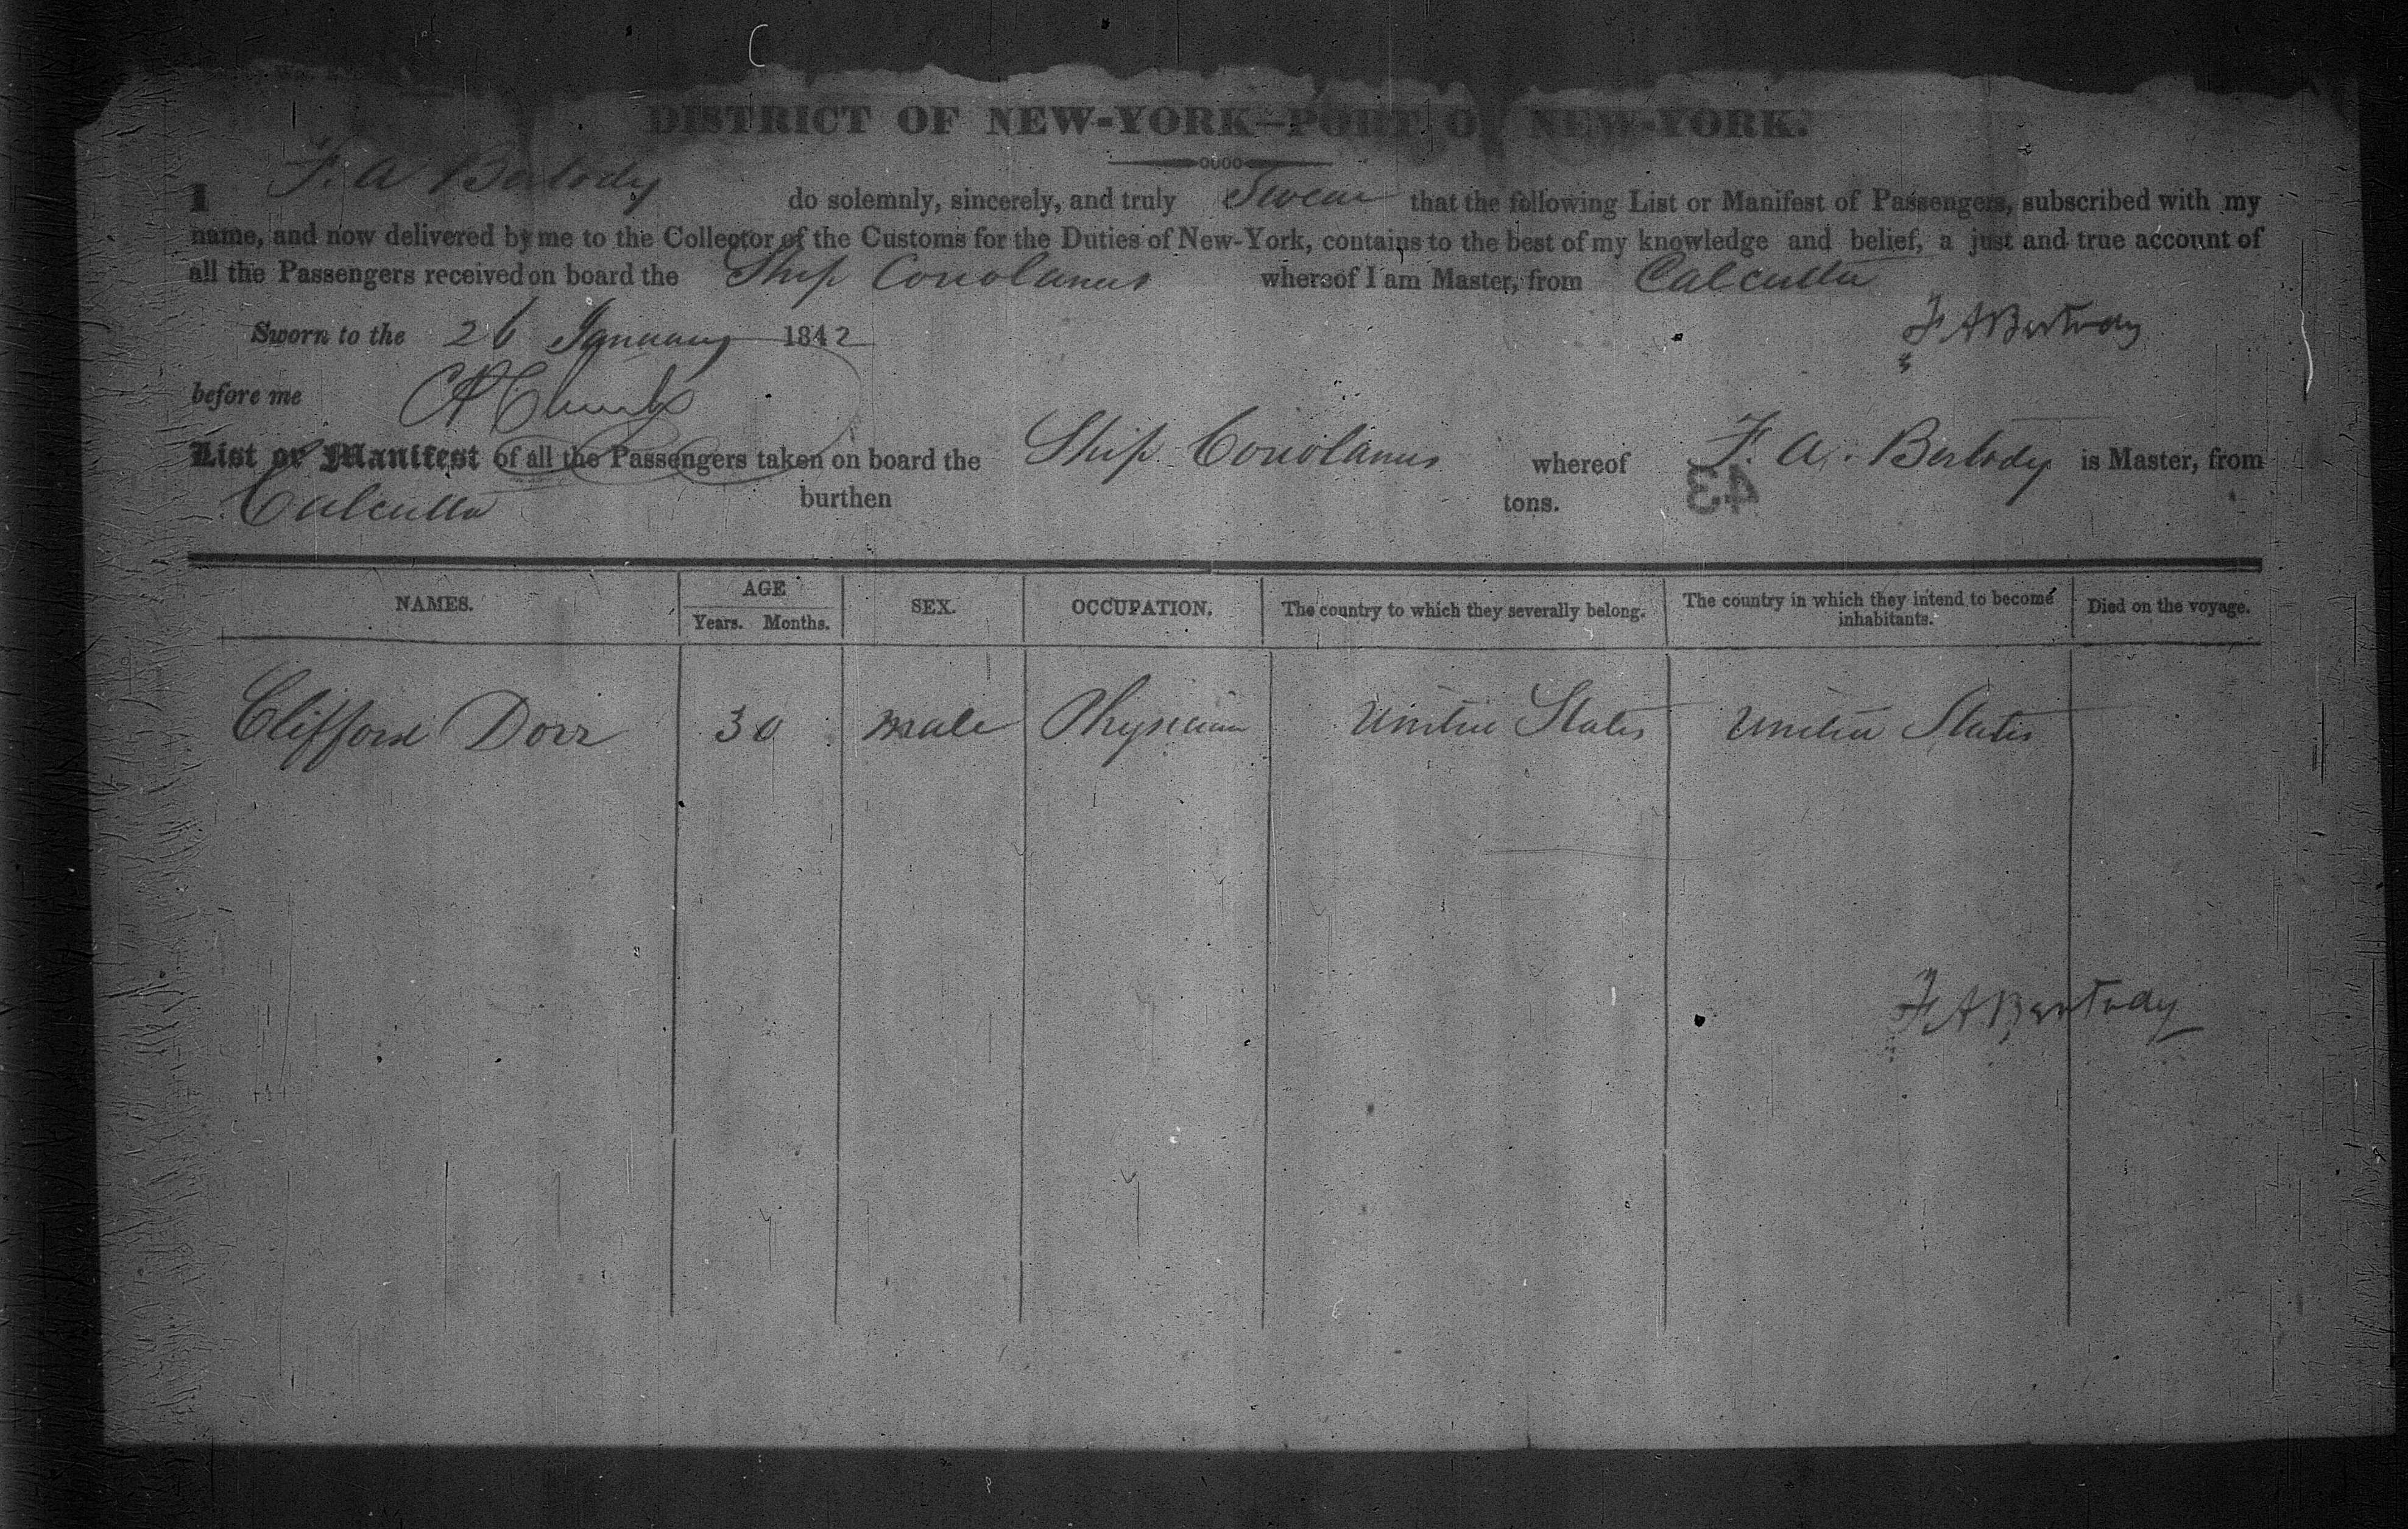 DISTRICT OF NEW-YORK—PORT OF NEW-YORK.
I F. A Bertody do solemnly, sincerely, and truly Swear that the following List or Manifest of Passengers, subscribed with my
name, and now delivered by me to the Collector of the Customs for the Duties of New-York, contains to the best of my knowledge and belief, a just and true account of
all the Passengers received on board the Ship Coriolanus whereof I am Master, from Calcutta
Sworn to the 26 January 1842 F A Bertody
before me
List or Manifest of all the Passengers taken on board the Ship Coriolanus whereof F. A. Bertody is Master, from
Calcutta burthen tons. 43
NAMES. AGE Years. Months. SEX. OCCUPATION. The country to which they severally belong. The country in which they intend to become inhabitants. Died on the voyage.
Clifford Dorr 30 male Physician United States United States
F A Bertody